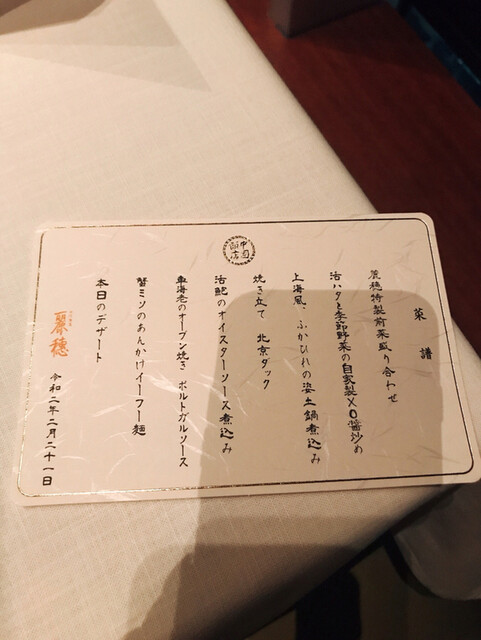 菜譜
麗穂特製前菜盛り合わせ
活ハタと季節野菜の自家製XO醤炒め
上海風、ふかひれの姿土鍋煮込み
焼き立て 北京ダック
活鮑のオイスターソース煮込み
車海老のオーブン焼き ポルトガルソース
蟹ミソのあんかけイーフー麺
本日のデザート
麗穂
令和二年二月二十一日